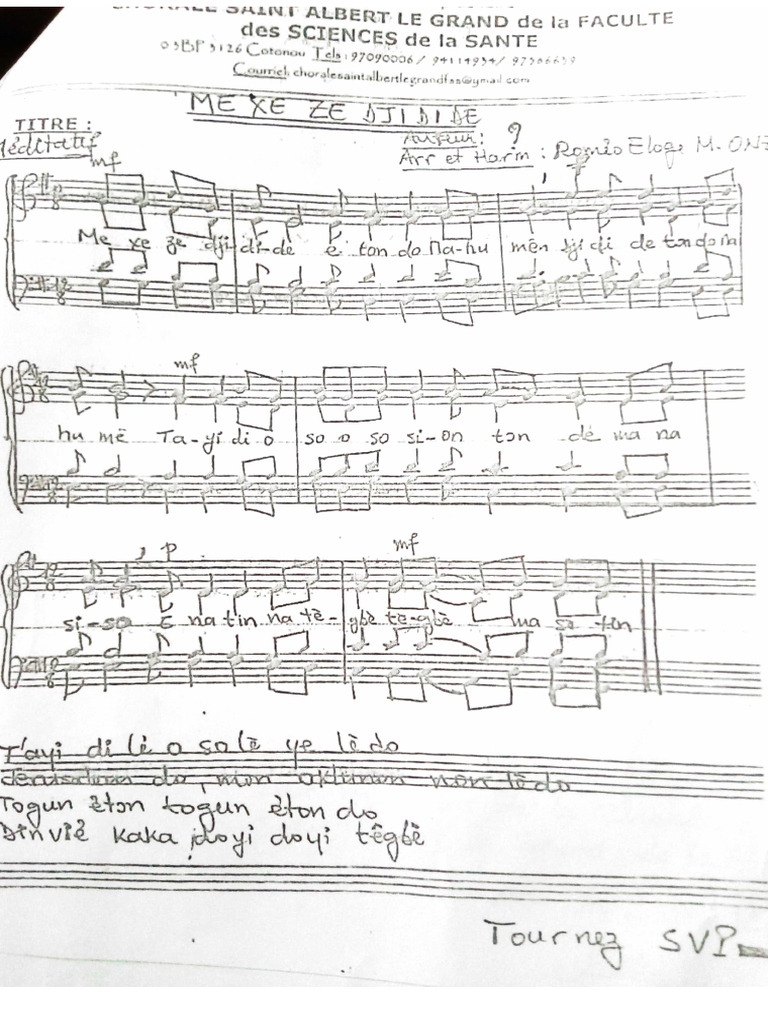 CHORALE SAINT ALBERT LE GRAND de la FACULTE
des SCIENCES de la SANTE
03BP 3126 Cotonou Tels: 97090006/ 94114934/ 97566659
Courriel: choralesaintalbertlegrandfss@gmail.com
TITRE : ME XE ZE DJIDIDE
Méditatif
Auteur: ?
Arr et Harm : Roméo Eloge M.
mf
Me xe ze dji-di-de e ton do na-hu mën dji di de ton do na
mf
hu më Ta-yi di o so o so si-on ton dé ma na
p mf
si-so E na tin na tê-gbè tê-gbè ma so ten
T'ayi di lè o so lè ye lè do
do, mon non lè do
Togun èton togun èton do
Din vié kaka doyi têgbè
Tournez SVP